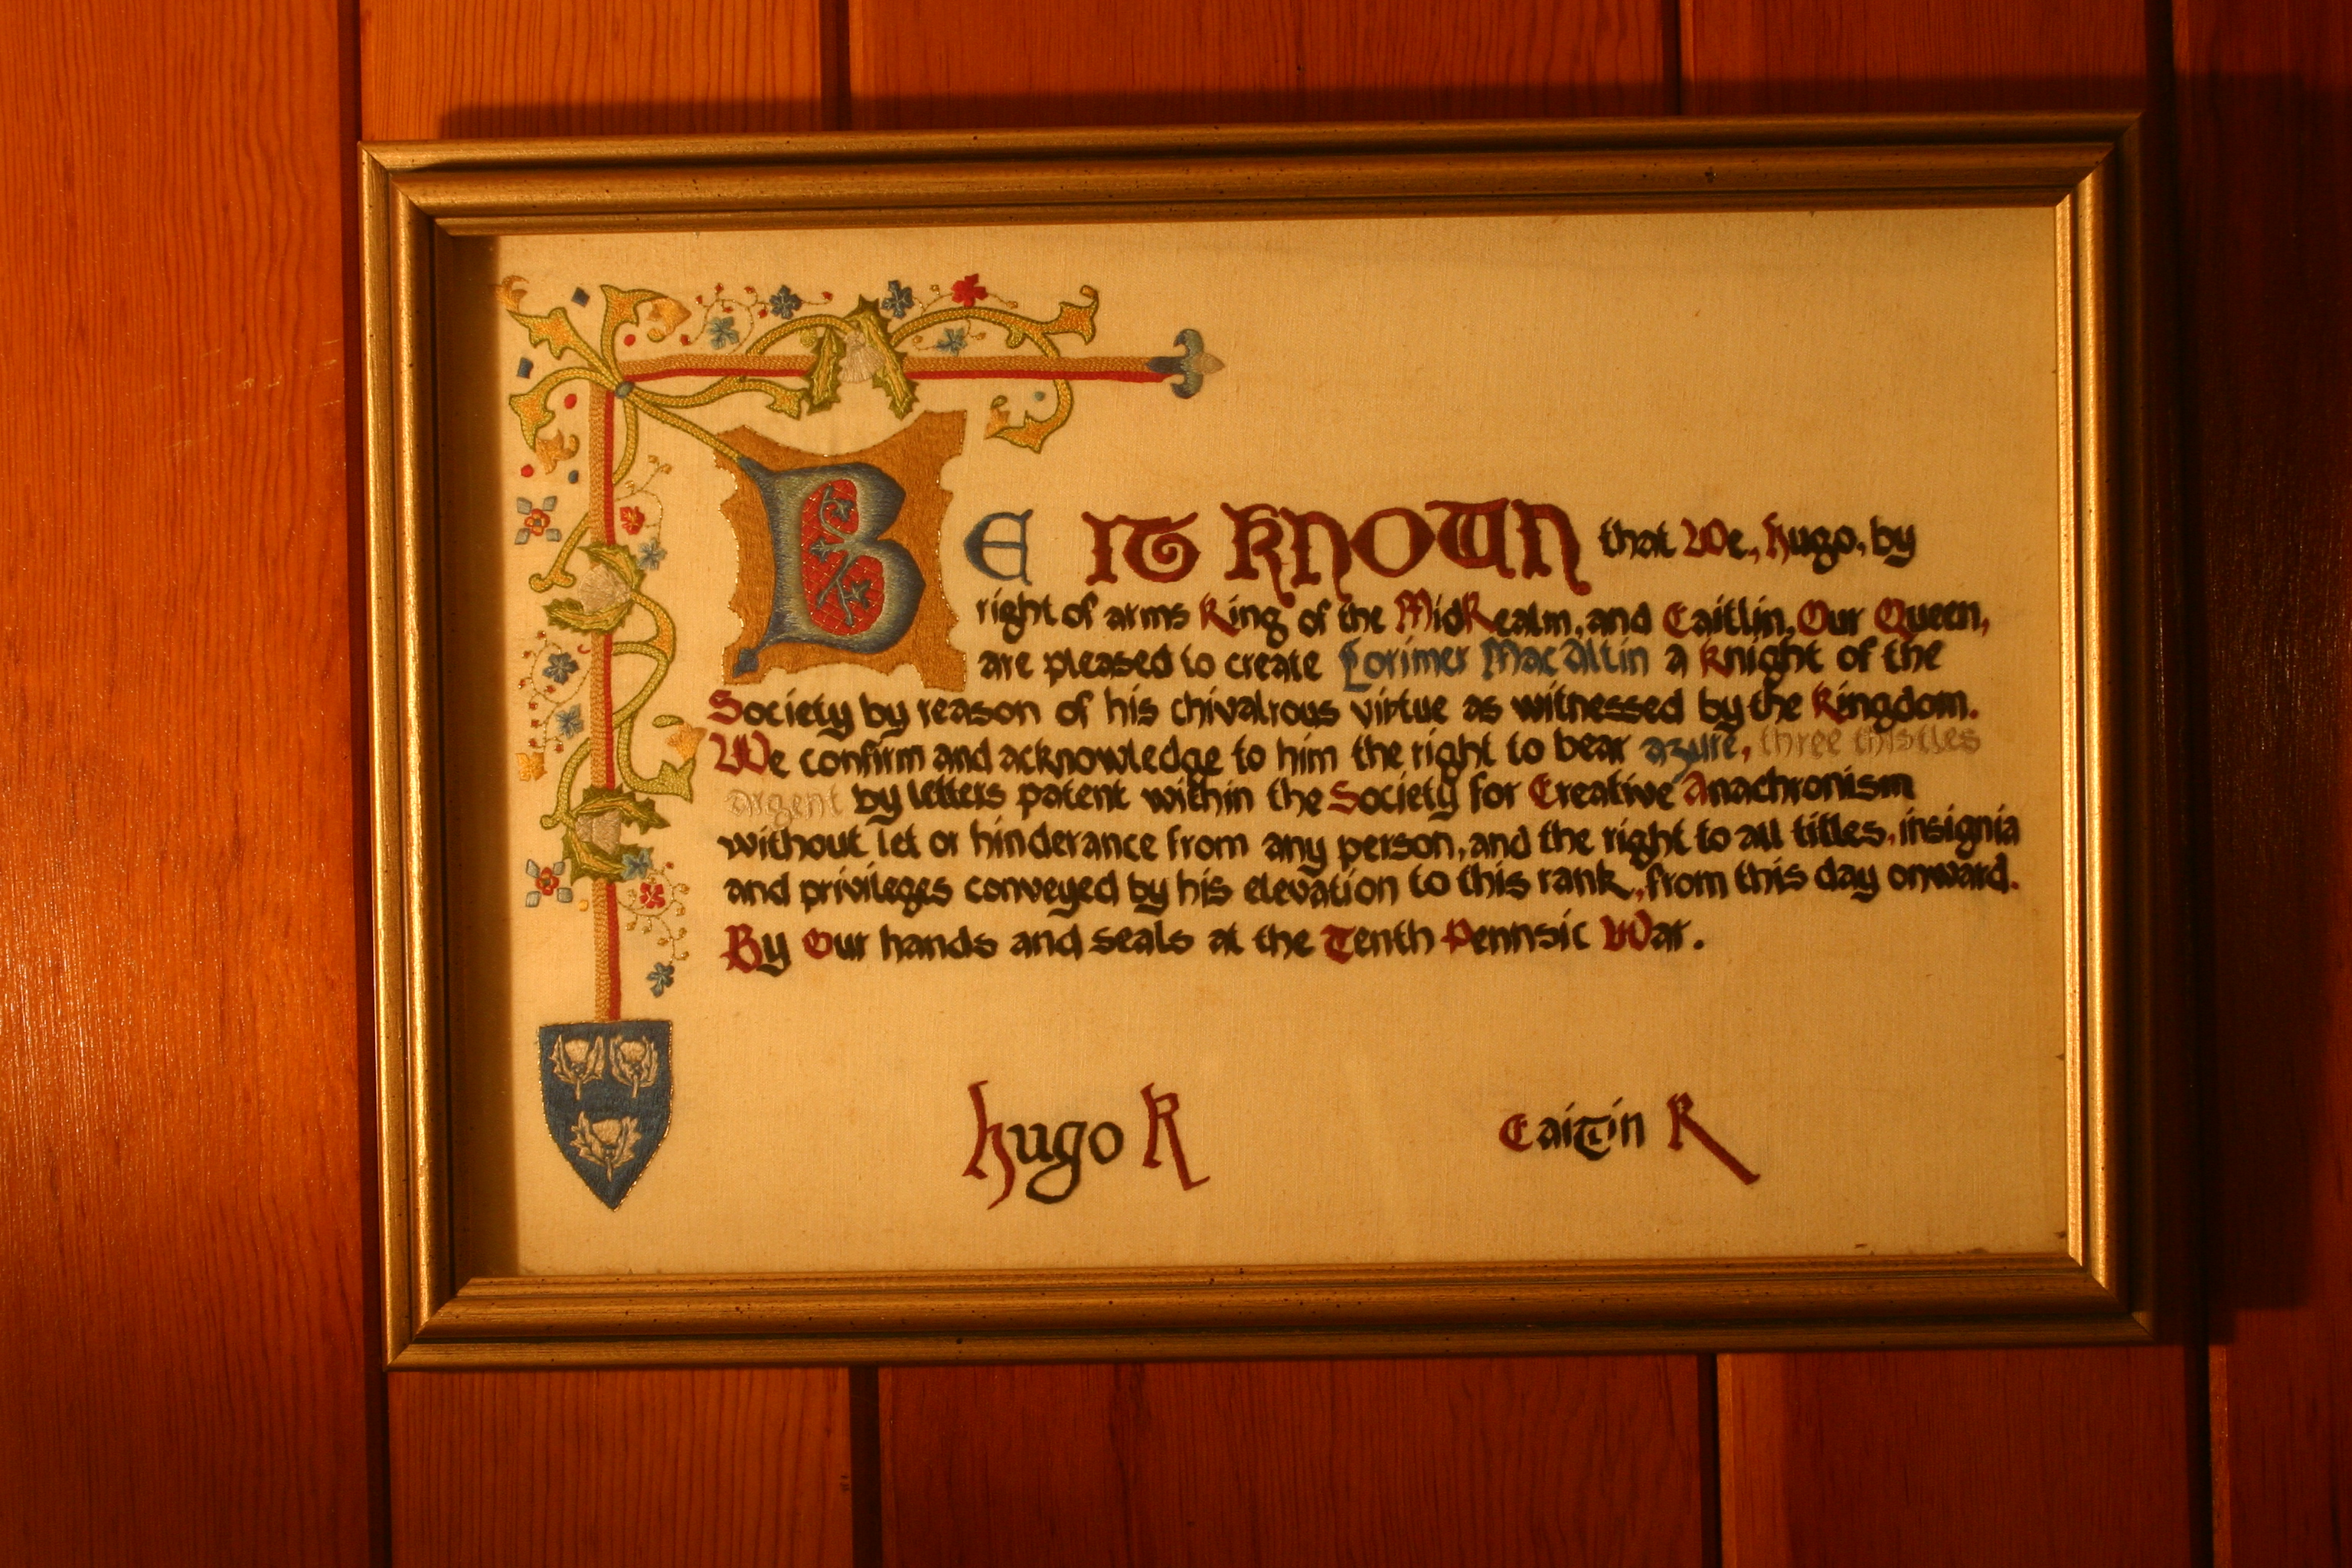 BE IT KNOWN that We, Hugo, by
right of arms King of the MidRealm, and Caitlin, Our Queen,
are pleased to create Lorimer MacAltin a knight of the
Society by reason of his chivalrous virtue as witnessed by the Kingdom.
We confirm and acknowledge to him the right to bear azure, three thistles
argent by letters patent within the Society for Creative Anachronism
without let or hinderance from any person, and the right to all titles, insignia
and privileges conveyed by his elevation to this rank, from this day onward.
By Our hands and seals at the Tenth Pennsic War.
Hugo R Caitlin R